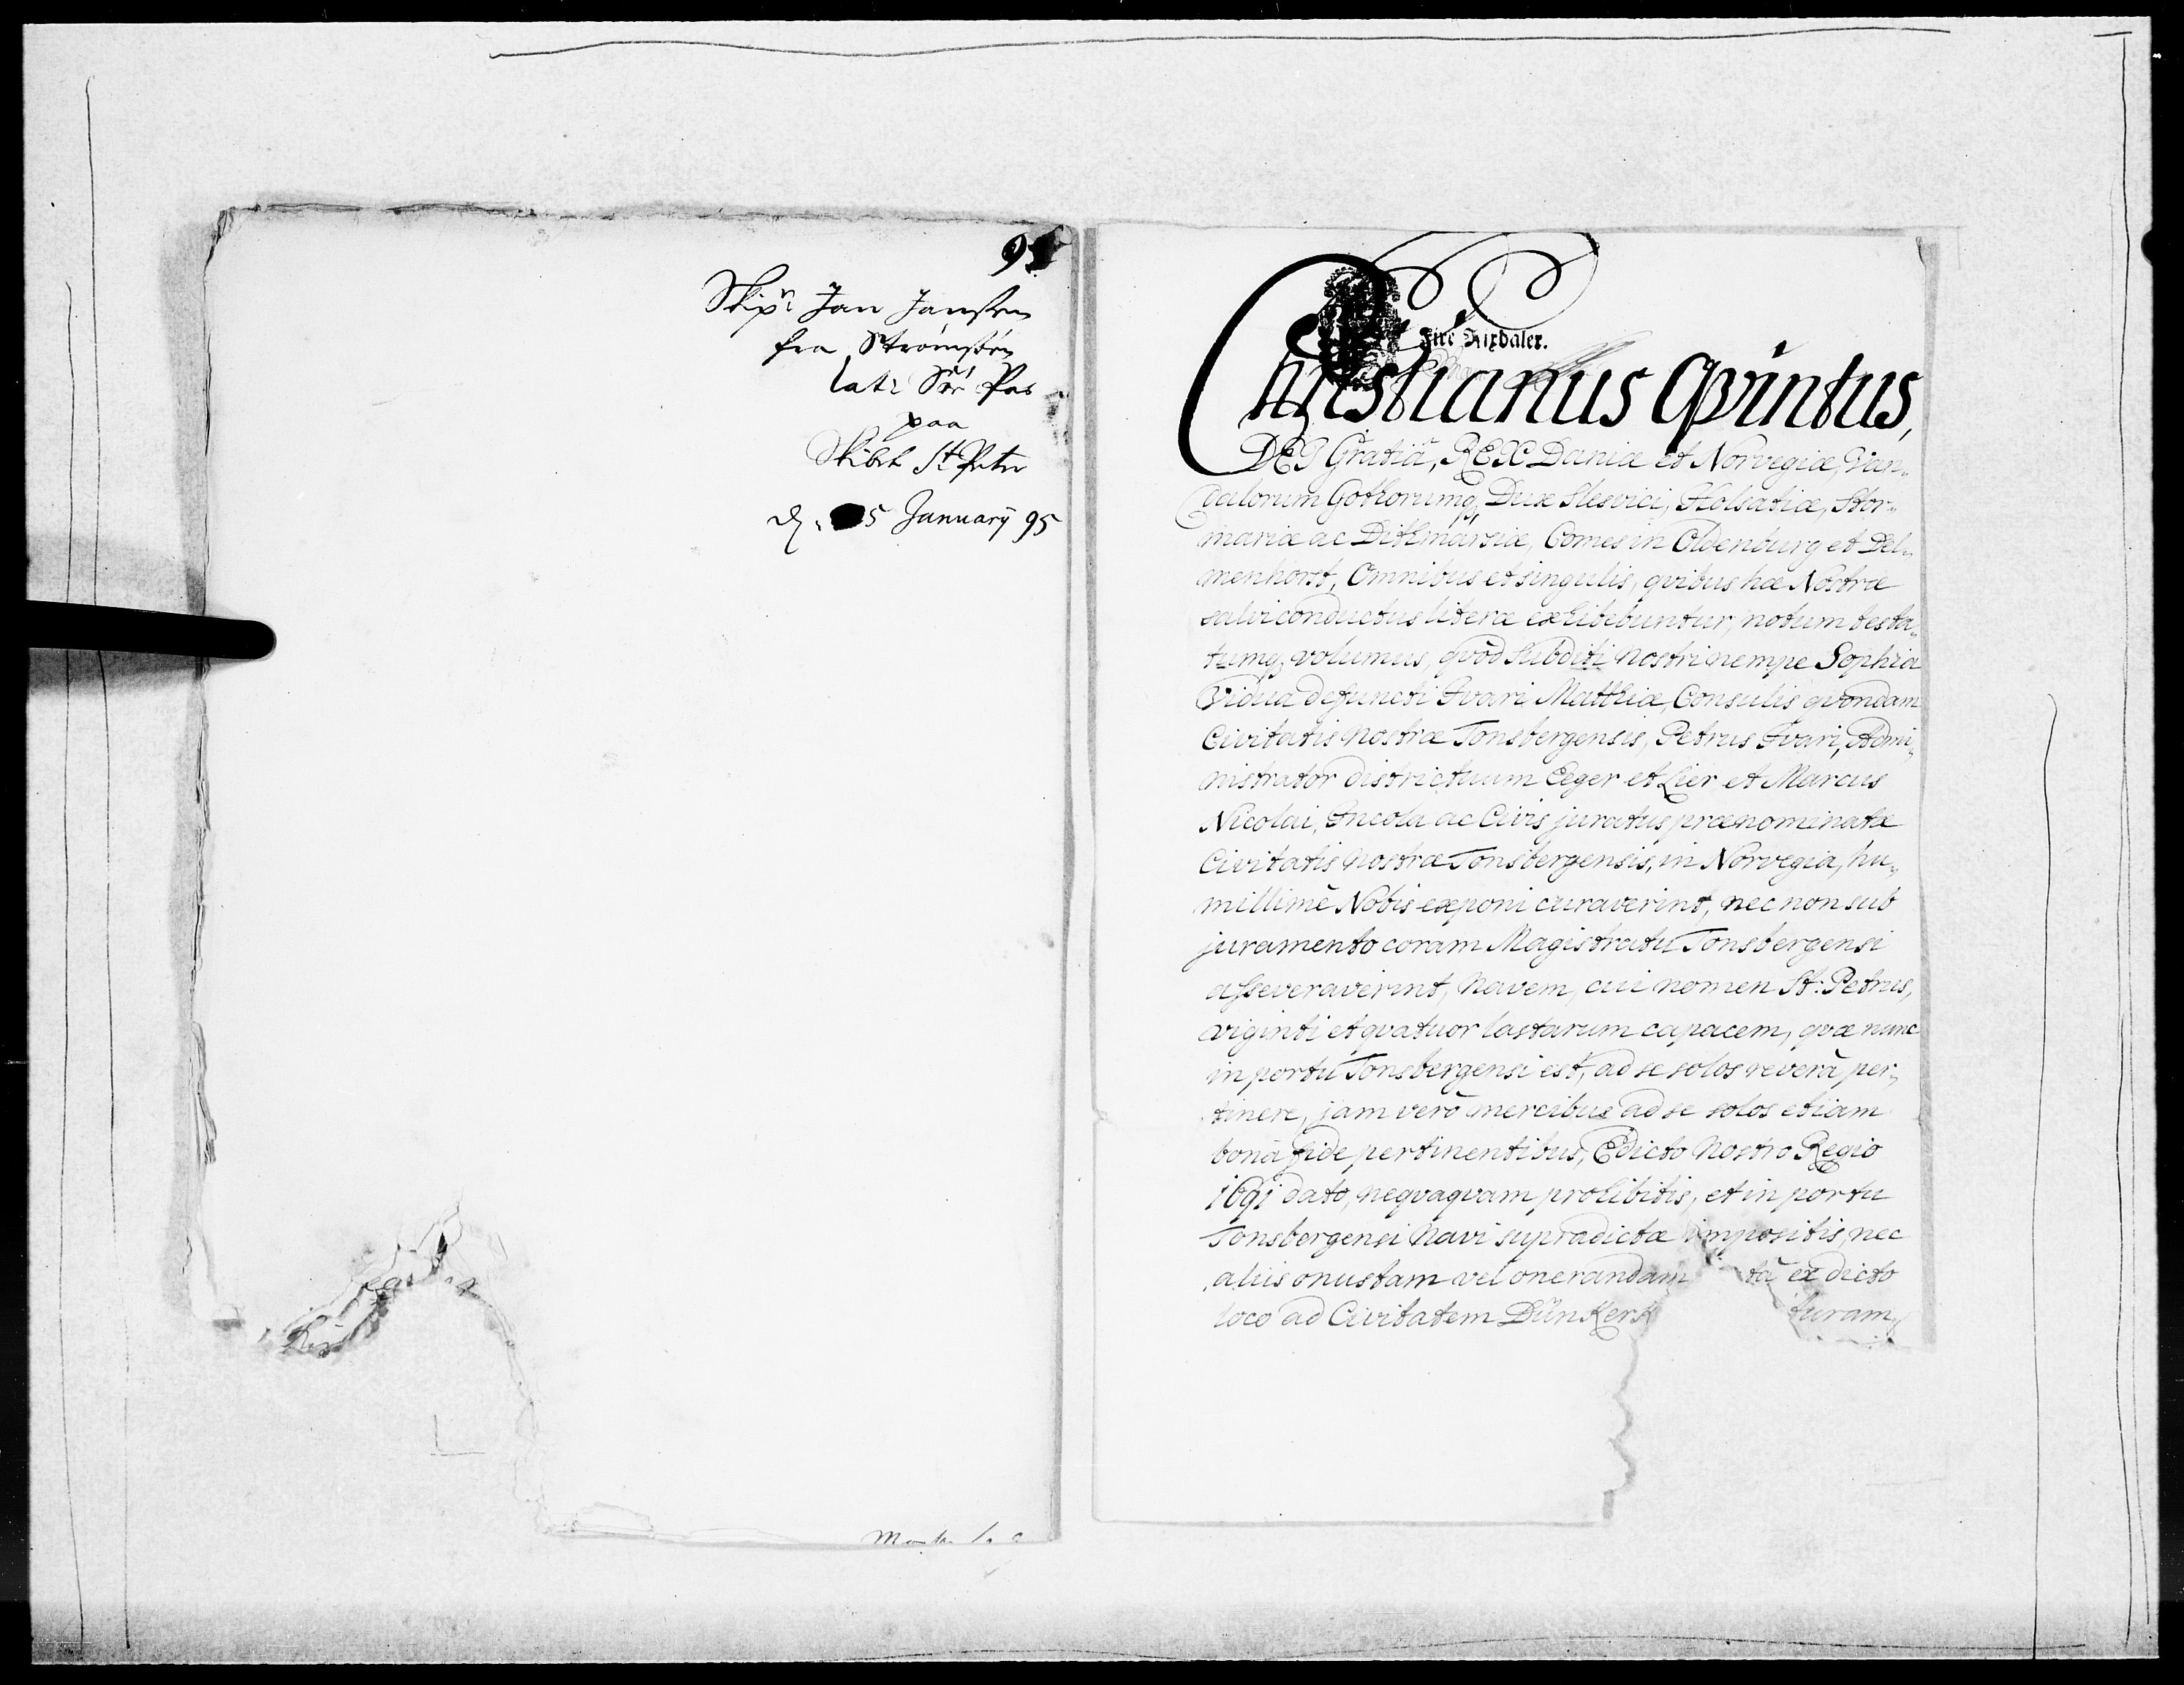 95
Skipr Jan Janssen
fra Strømssøe
lat: Søe Pas
paa
Skibet St Peter
d. 5 January 95
Fire Rixdaler.
Christianus Qvintus,
DEI Gratiâ, REX Daniæ et Norvegiæ, Van-
dalorum Gothorumq, Dux Slesvici, Holsatiæ, Stor-
mariæ ac Dithmarsiæ, Comes in Oldenburg et Del-
menhorst, Omnibus et singulis, qvibus hæ Nostræ
salvi conductus literæ exhibebuntur, notum testa-
tumq volumus, qvòd Subditi nostri nempe Sophia
Vidua defuncti Ivari Matthiæ, Consulis qvondam
Civitatis nostræ Tonsbergensis, Petrus Ivari, Admi-
nistrator districtuum Eeger et Lier et Marcus
Nicolai, Incola ac Civis juratus prænominatæ
Civitatis nostræ Tonsbergensis, in Norvegia, hu-
millimè Nobis exponi curaverint, nec non sub
juramento coram Magistratu Tonsbergensi
asseveraverint, Navem, cui nomen St: Petrus,
viginti et qvatuor lastarum capacem, qvæ nunc
in portu Tonsbergensi est, ad se solos reverà per-
tinere, jam verò mercibus ad se solos etiam
bonâ fide pertinentibus, Edicto Nostro Regio
1691 dato, neqvaqvam prohibitis, et in portu
Tonsbergensi Navi supradictæ impositis, nec
aliis onustam vel onerandam tâ ex dicto
loco ad Civitatem Dünkerk turam